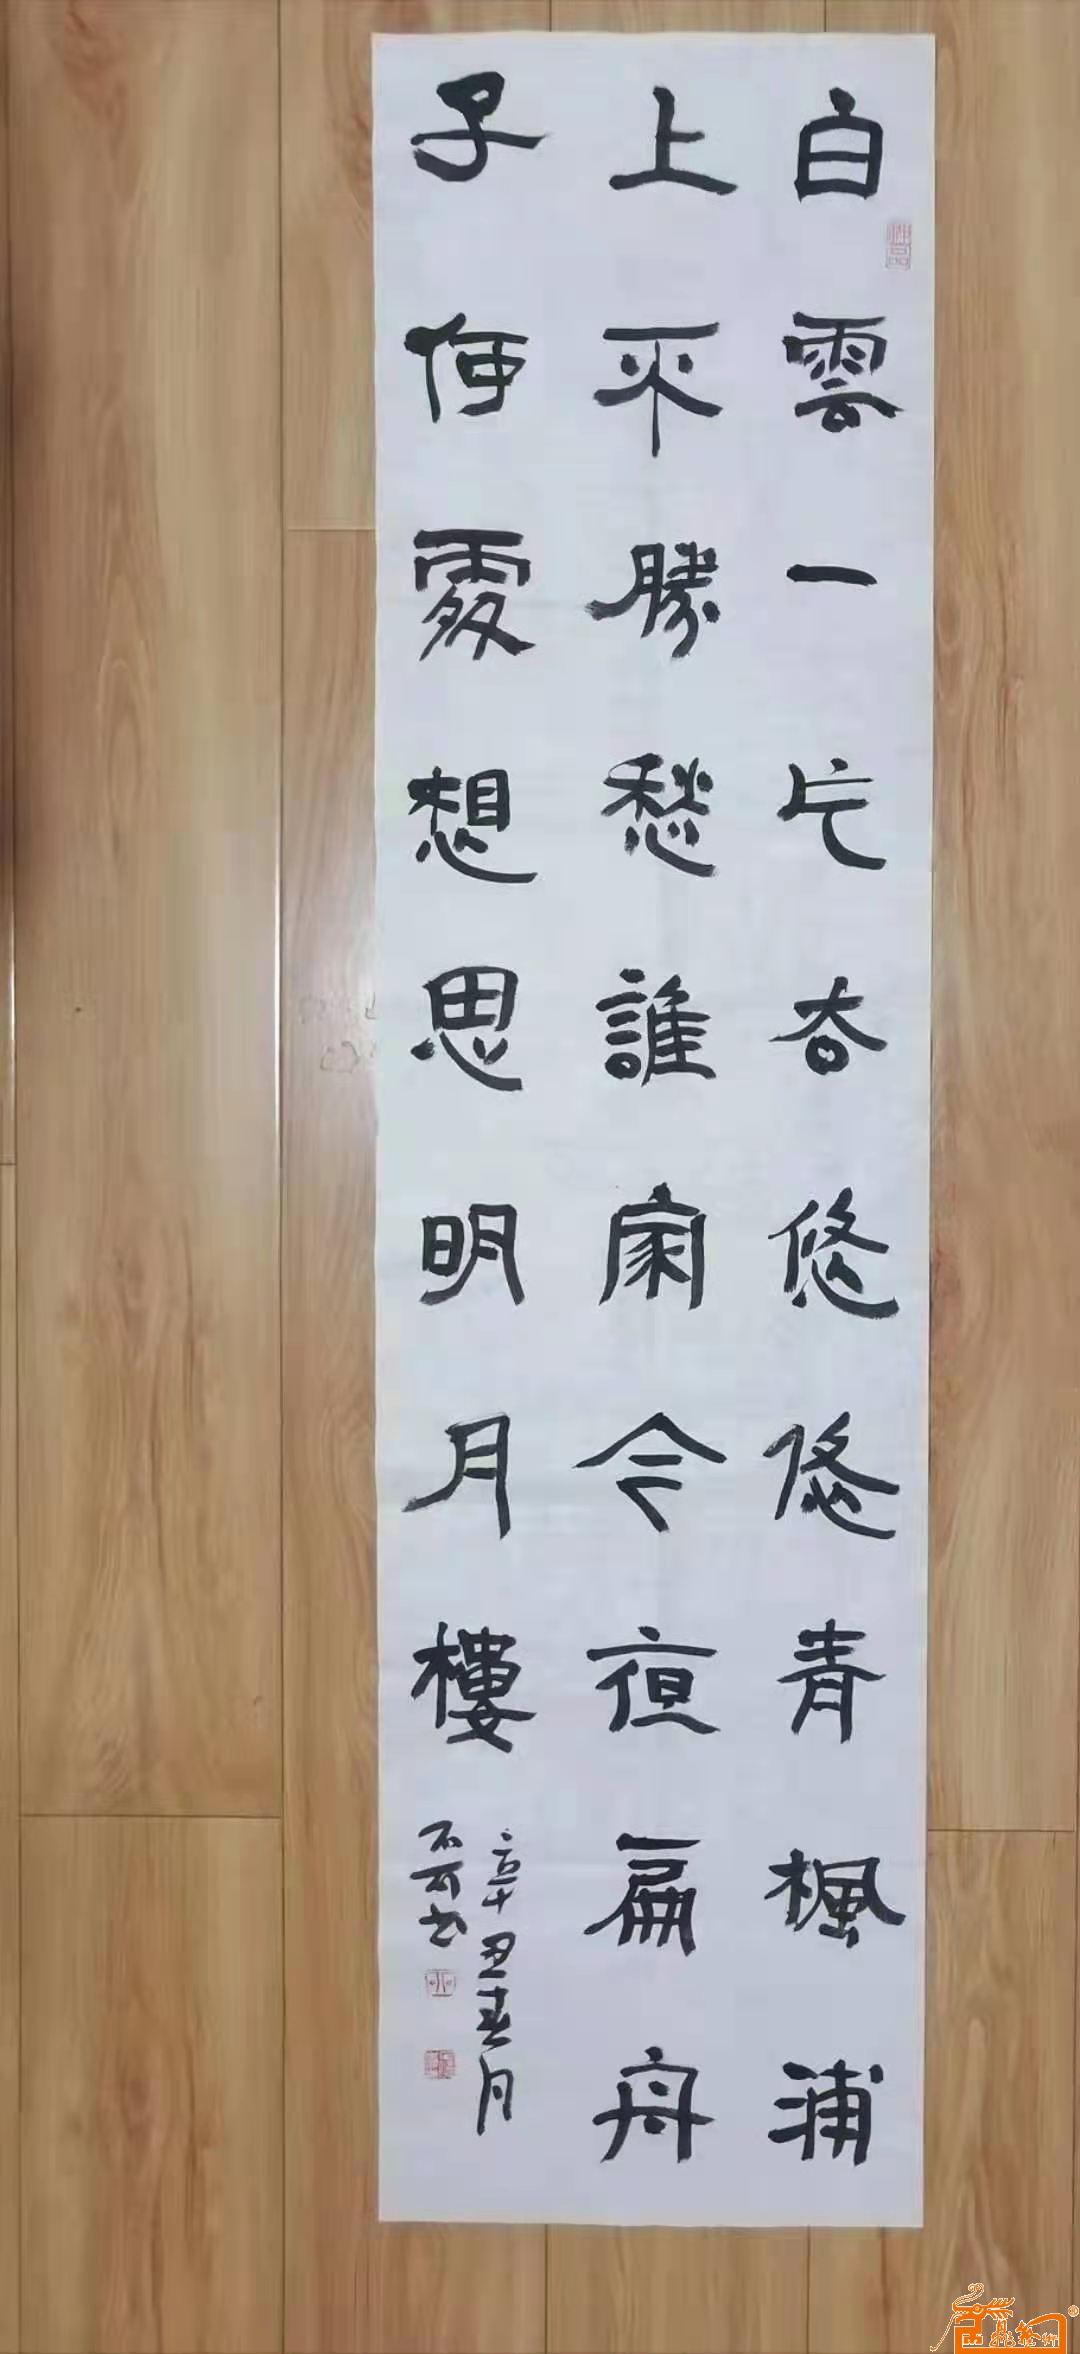 白雲一片去悠悠青楓浦
上不勝愁誰家今夜扁舟
子何處想思明月樓
辛丑春月